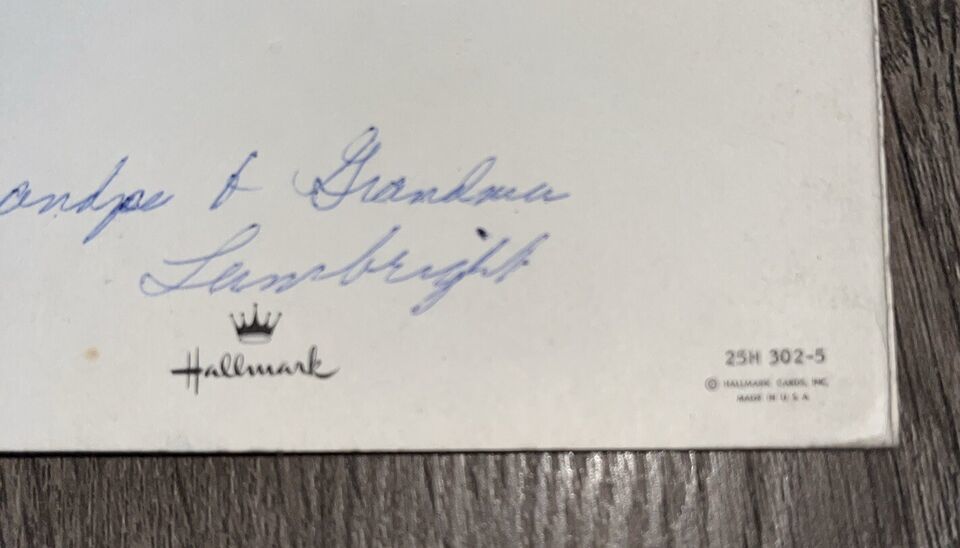 andpa & Grandma
Lambright
Hallmark
25H 302-5
© HALLMARK CARDS, INC.
MADE IN U.S.A.